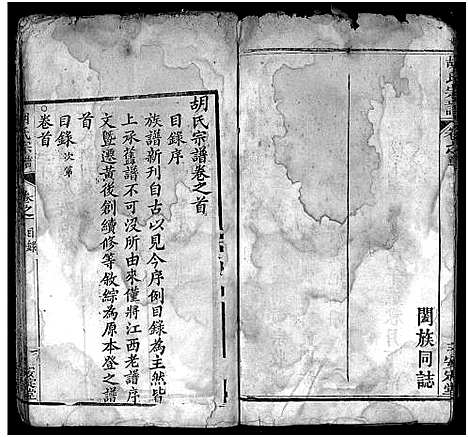 胡氏宗譜
閤族同誌
安定堂
胡氏宗譜卷之首
目錄序
族譜新刊自古以見今序例目錄為主然皆
上承舊譜不可沒所由來僅將江西老譜序
文暨遷黃後創續修等敘綜為原本登之譜
首
目錄次第
卷首
胡氏宗譜
卷之首
目錄
一
安定堂